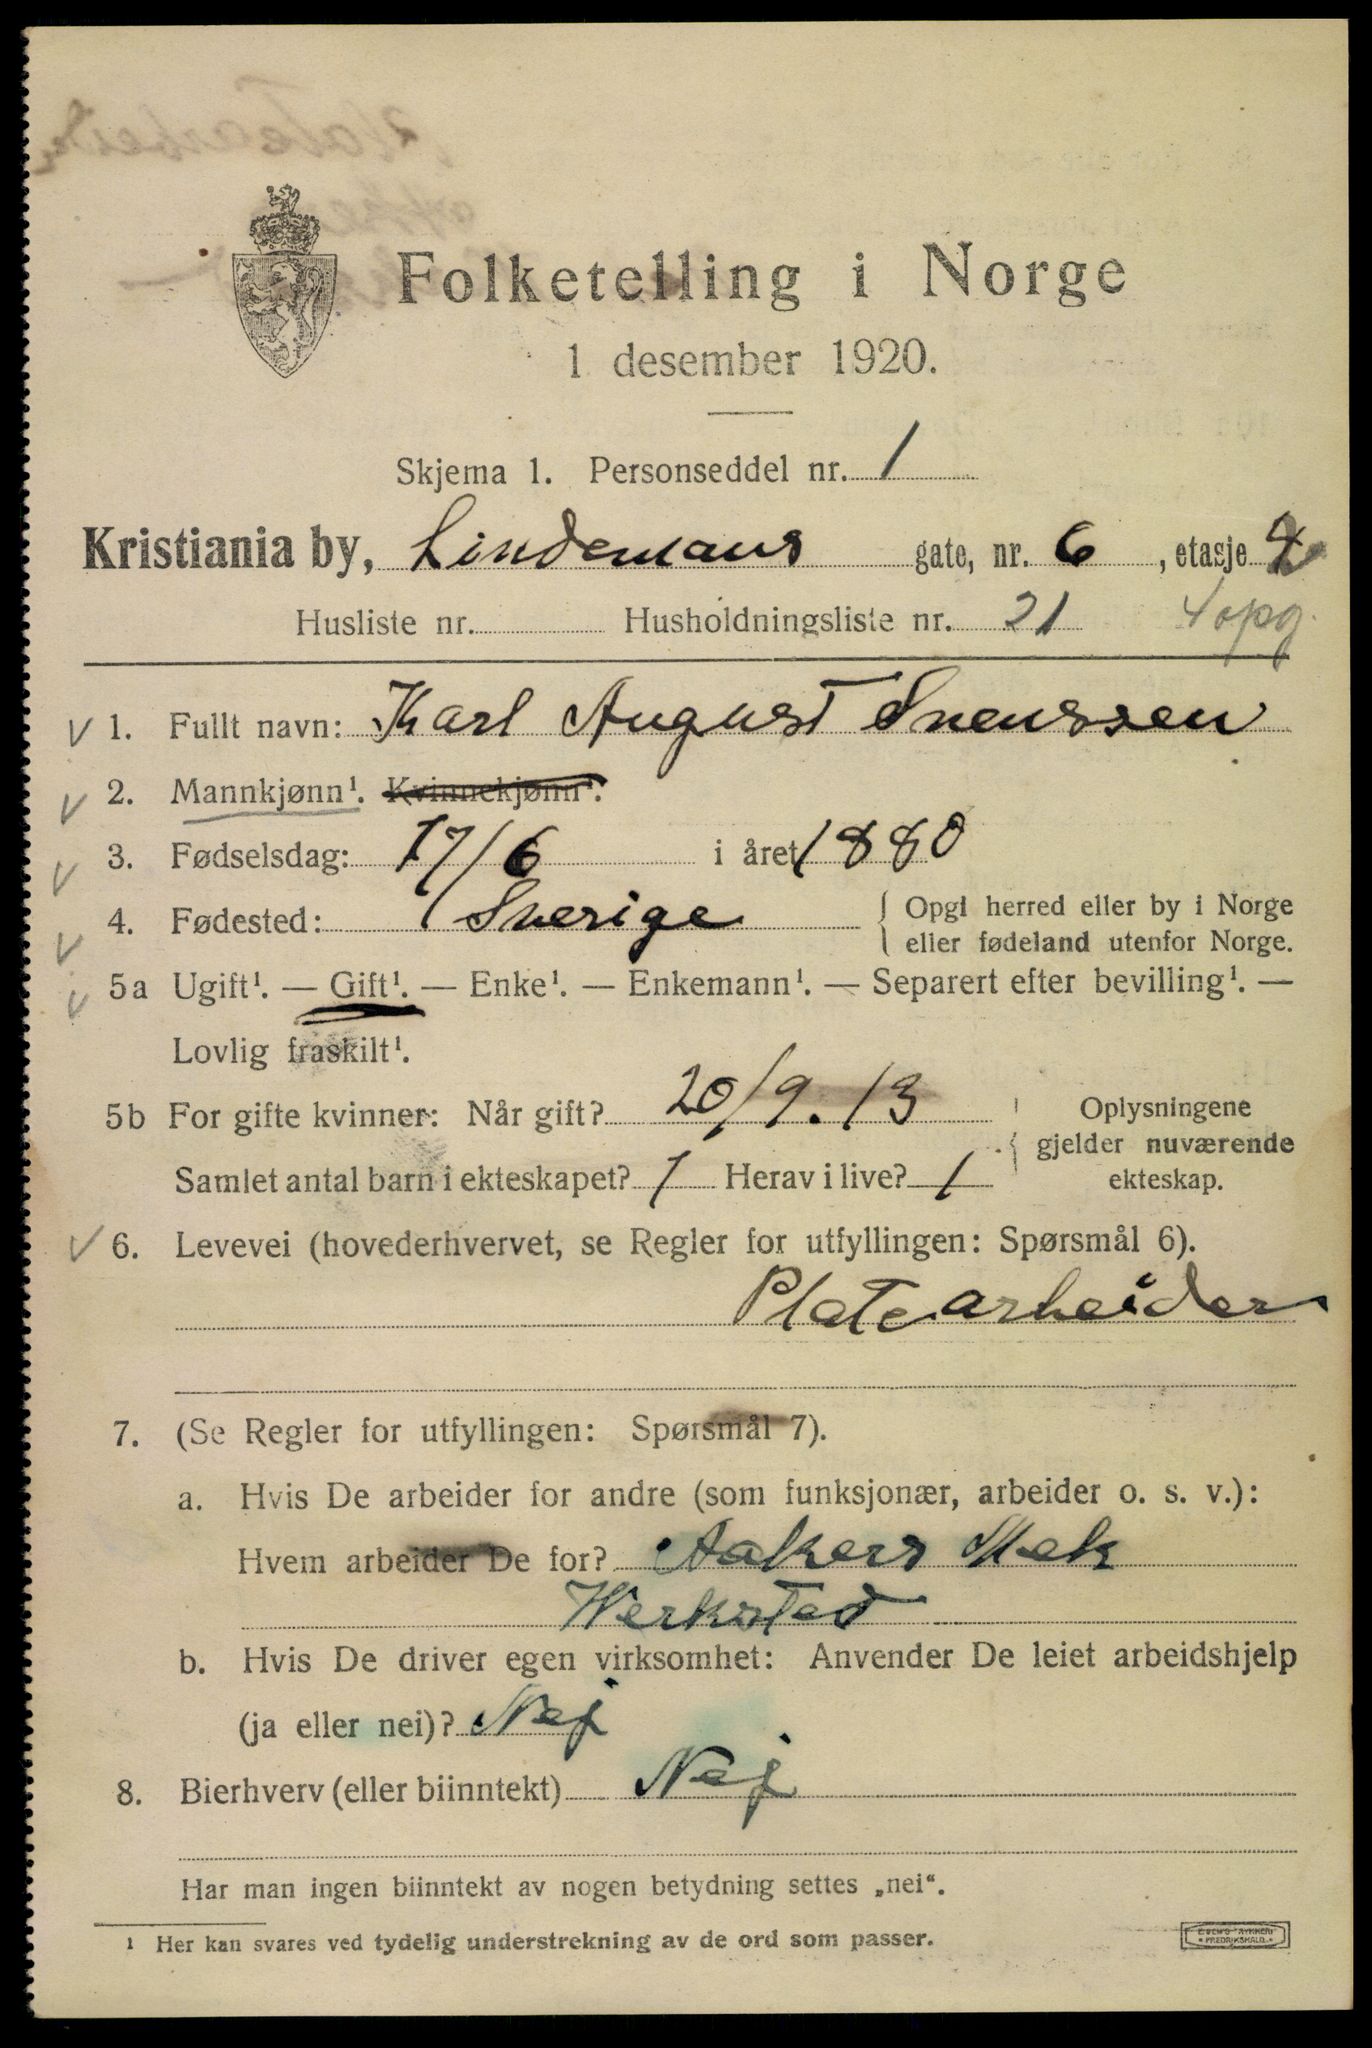 Folketelling i Norge
1 desember 1920.
Skjema 1. Personseddel nr. 1
Kristiania by, Lindemans gate, nr. 6, etasje 4
Husliste nr. Husholdningsliste nr. 21 4 opg.
1. Fullt navn: Karl August Svenssen
2. Mannkjønn¹. Kvinnekjønn¹.
3. Fødselsdag: 17/6 i året 1880
4. Fødested: Sverige { Opgl herred eller by i Norge
eller fødeland utenfor Norge.
5a Ugift¹. — Gift¹. — Enke¹. — Enkemann¹. — Separert efter bevilling¹. —
Lovlig fraskilt¹.
5b For gifte kvinner: Når gift? 20/9. 13 Oplysningene
gjelder nuværende
Samlet antal barn i ekteskapet? 1 Herav i live? 1 ekteskap.
6. Levevei (hovederhvervet, se Regler for utfyllingen: Spørsmål 6).
Platearbeider
7. (Se Regler for utfyllingen: Spørsmål 7).
a. Hvis De arbeider for andre (som funksjonær, arbeider o. s. v.):
Hvem arbeider De for? Aakers Mek
Werksted
b. Hvis De driver egen virksomhet: Anvender De leiet arbeidshjelp
(ja eller nei)? Nej
8. Bierhverv (eller biinntekt) Nej
Har man ingen biinntekt av nogen betydning settes „nei“.
¹ Her kan svares ved tydelig understrekning av de ord som passer.